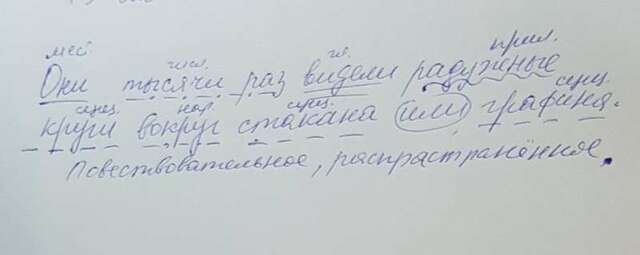 мес. числ. гл. прил.
Они тысячи раз видели радужные
сущ. нар. сущ. сущ.
круги вокруг стакана или графина.
Повествовательное, распрастранённое.